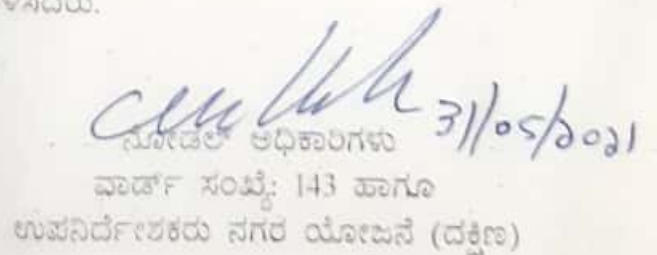 31/05/2021
ನೋಡಲ್ ಅಧಿಕಾರಿಗಳು
ವಾರ್ಡ್ ಸಂಖ್ಯೆ: 143 ಹಾಗೂ
ಉಪನಿರ್ದೇಶಕರು ನಗರ ಯೋಜನೆ (ದಕ್ಷಿಣ)